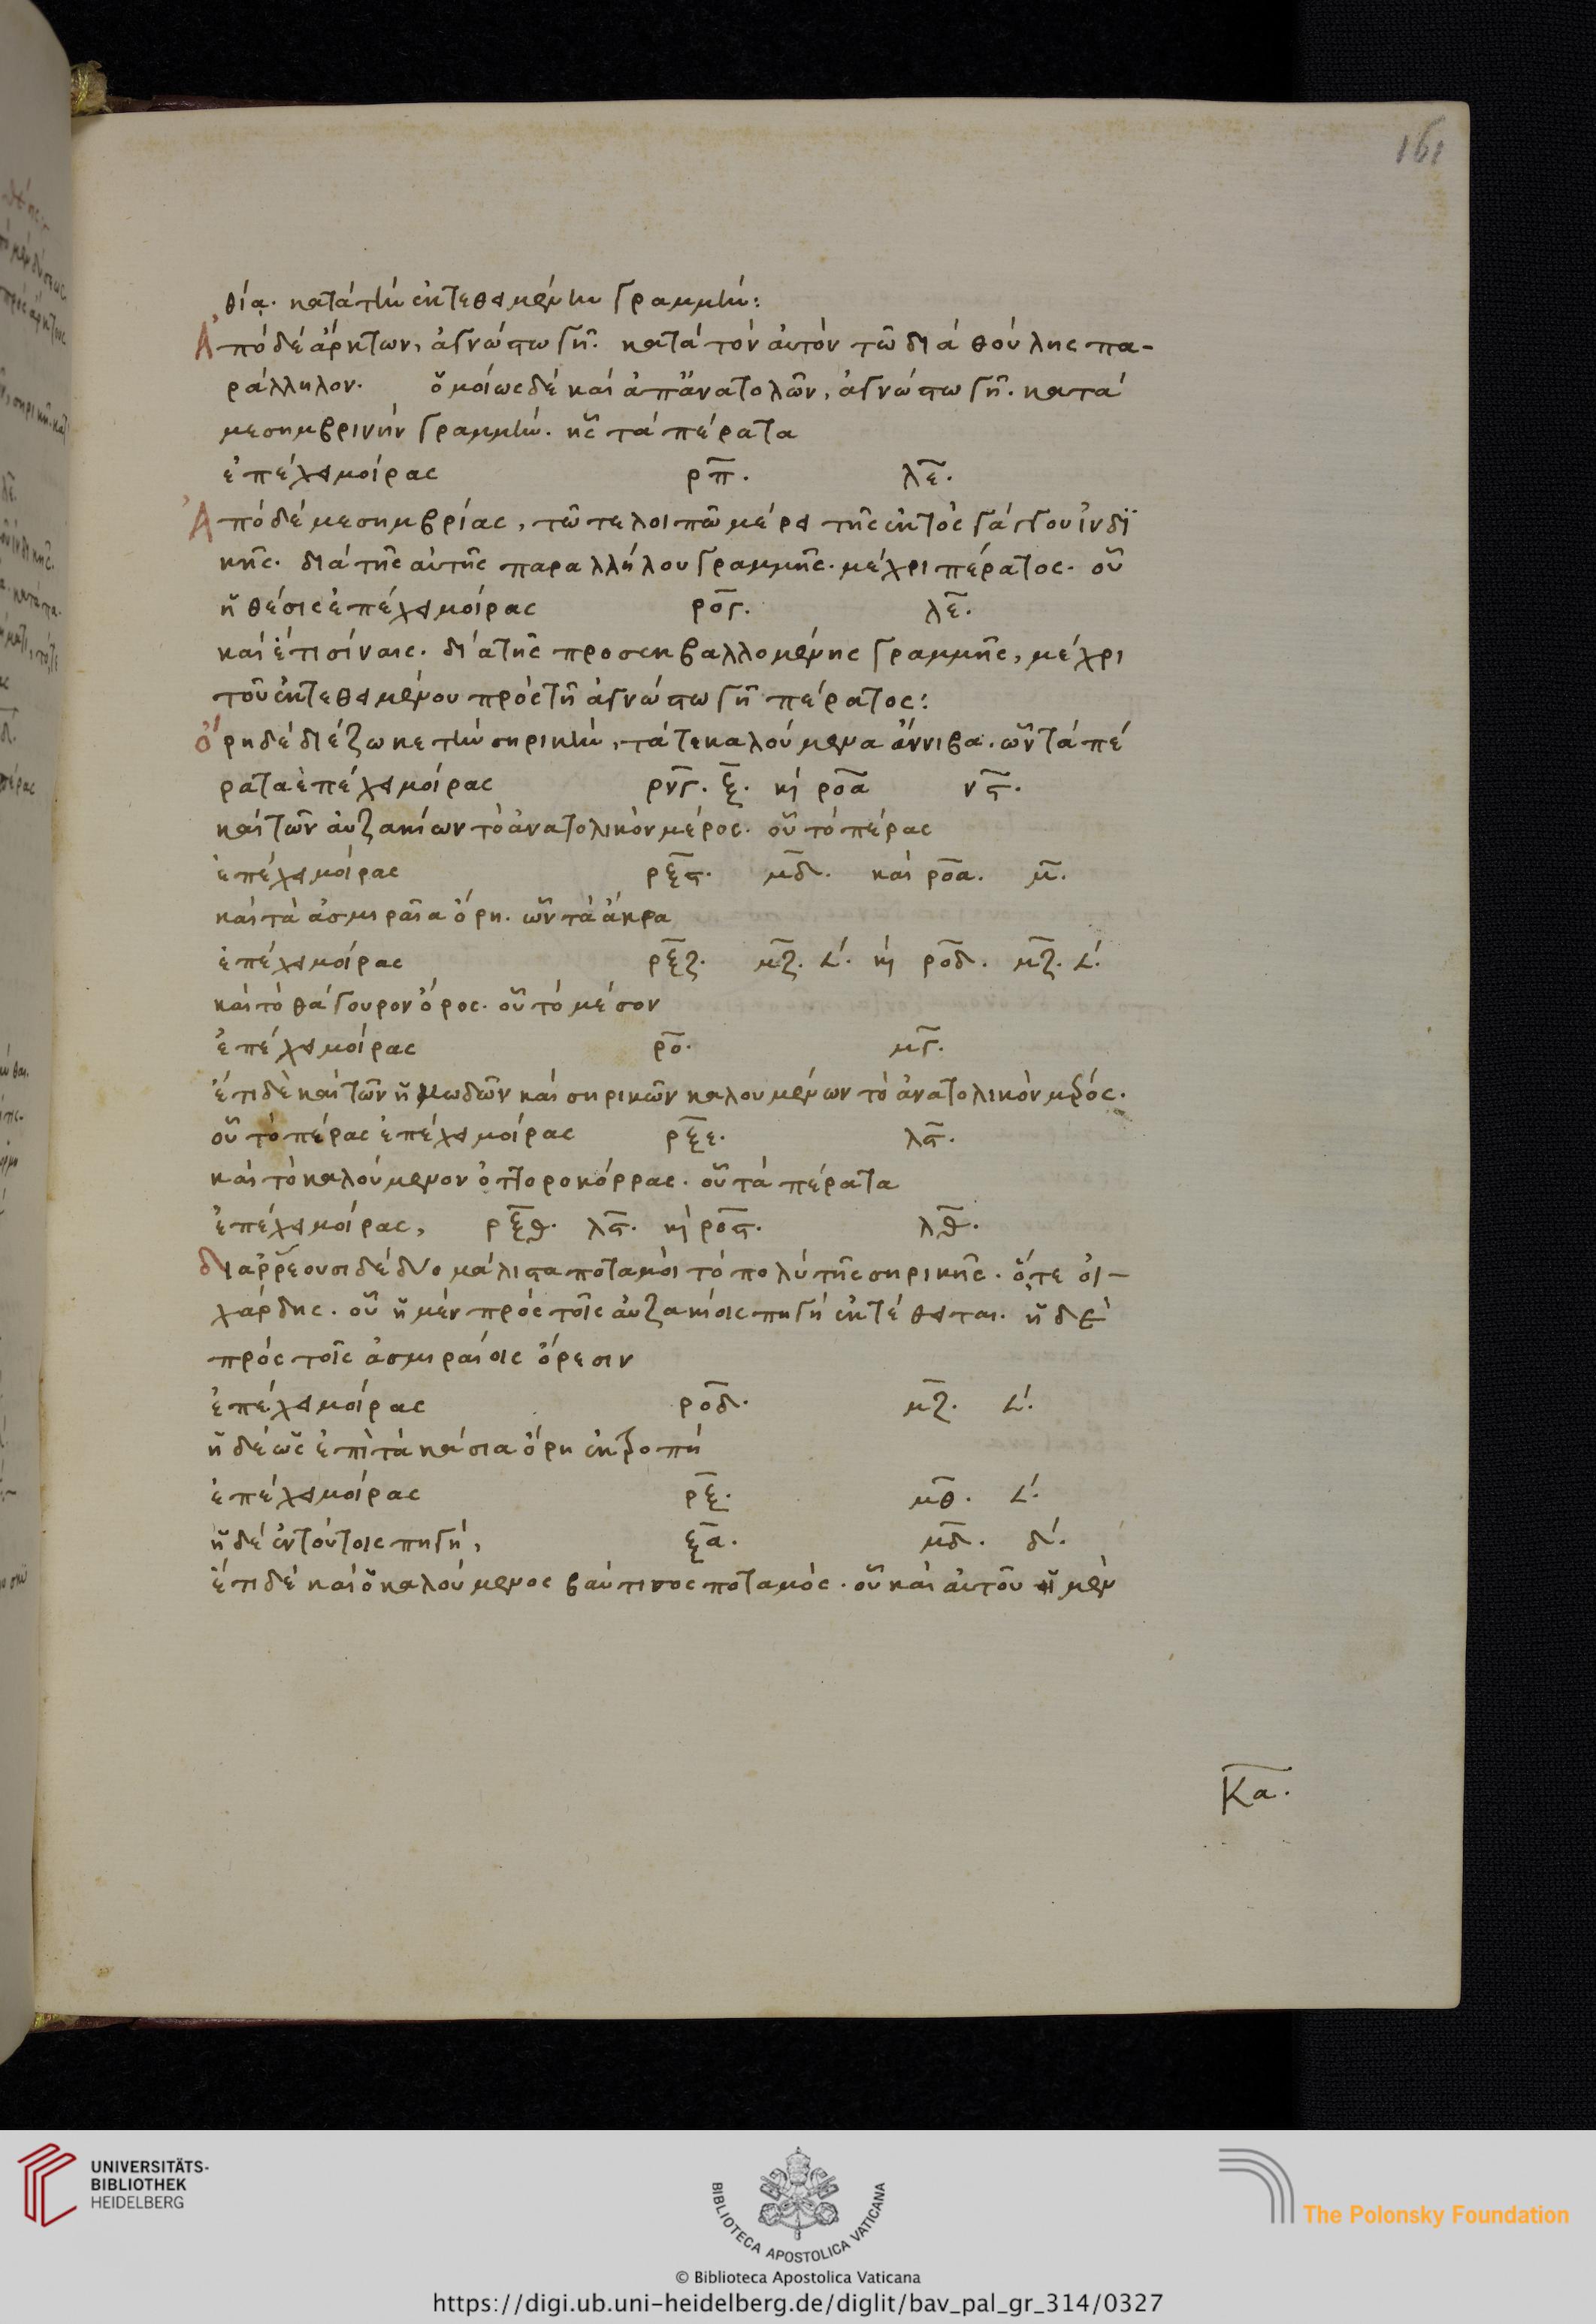 161
θία. κατὰ τὴν ἐκτεθειμένην γραμμήν:
Ἀπὸ δὲ ἄρκτων, ἀγνώστω γῆ. κατὰ τὸν αὐτὸν τῶ διὰ θούλης πα-
ράλληλον. ὁμοίως δὲ καὶ ἀπ ἀνατολῶν, ἀγνώστω γῆ. κατὰ
μεσημβρινὴν γραμμήν. ἧς τὰ πέρατα
ἐπέχει μοίρας ρπ. λε.
Ἀπὸ δὲ μεσημβρίας, τῶ τε λοιπῶ μέρει τῆς ἐκτὸς γάγγου ἰνδι
κῆς. διὰ τῆς αὐτῆς παραλλήλου γραμμῆς. μέχρι πέρατος. οὗ
ἡ θέσις ἐπέχει μοίρας ρογ. λε.
καὶ ἔτι σίναις. διὰ τῆς προσεκβαλλομένης γραμμῆς, μέχρι
τοῦ ἐκτεθειμένου πρὸς τῆ ἀγνώστω γῆ πέρατος:
Ὄρη δὲ διέζωκε τὴν σηρικὴν, τά τε καλούμενα ἄννιβα. ὧν τὰ πέ
ρατα ἐπέχει μοίρας ρνγ. ξ. κὶ ροα νς.
καὶ τῶν αὐζακίων τὸ ἀνατολικὸν μέρος. οὗ τὸ πέρας
ἐπέχει μοίρας ρξς. μδ. καὶ ροα. μ.
καὶ τὰ ἀσμιραῖα ὄρη. ὧν τὰ ἄκρα
ἐπέχει μοίρας ρξζ. μζ. ∠΄. κὶ ροδ. μζ. ∠΄.
καὶ τὸ θάγουρον ὄρος. οὗ τὸ μέσον
ἐπέχει μοίρας ρο. μγ.
ἔτι δὲ καὶ τῶν ἡμωδῶν καὶ σηρικῶν καλουμένων τὸ ἀνατολικὸν μέρος.
οὗ τὸ πέρας ἐπέχει μοίρας ρξε. λς.
καὶ τὸ καλούμενον ὀττοροκόρρας. οὗ τὰ πέρατα
ἐπέχει μοίρας, ρξθ. λς. κὶ ρος. λθ.
διαρρέουσι δὲ δύο μάλιστα ποταμοὶ τὸ πολὺ τῆς σηρικῆς. ὅ,τε οἰ-
χάρδης. οὗ ἡ μὲν πρὸς τοῖς αὐζακίοις πηγὴ ἐκτέθειται. ἡ δὲ
πρὸς τοῖς ἀσμιραίοις ὄρεσιν
ἐπέχει μοίρας ροδ. μζ. ∠΄.
ἡ δὲ ὡς ἐπὶ τὰ κάσια ὄρη ἐκτροπὴ
ἐπέχει μοίρας ρξ. μθ. ∠΄.
ἡ δὲ ἐν τούτοις πηγή, ξα. μδ. δ΄.
ἔτι δὲ καὶ ὁ καλούμενος βαύτισος ποταμός. οὗ καὶ αὐτοῦ ἡ μὲν
Κα.
UNIVERSITÄTS-
BIBLIOTHEK
HEIDELBERG
BIBLIOTECA APOSTOLICA VATICANA
The Polonsky Foundation
© Biblioteca Apostolica Vaticana
https://digi.ub.uni-heidelberg.de/diglit/bav_pal_gr_314/0327